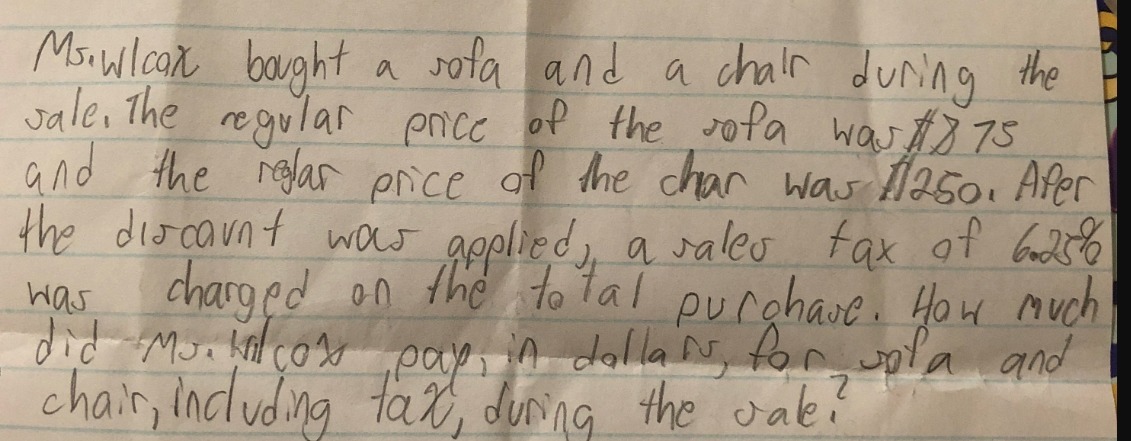 Ms. Wlcox bought a sofa and a chair during the
sale. The regular price of the sofa was $875
and the reglar price of the char was $1250. Afer
the discount was applied, a sales tax of 6.25%
was charged on the total purchase. How much
did Ms. Wilcox pay, in dollars, for sofa and
chair, including tax, during the sale?